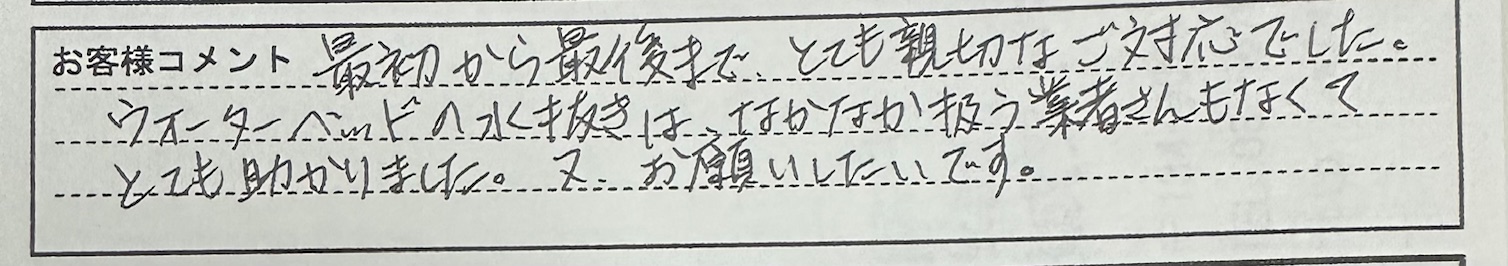 お客様コメント 最初から最後まで、とても親切なご対応でした。
ウォーターベッドの水抜きは、なかなか扱う業者さんもなくて
とても助かりました。又、お願いしたいです。